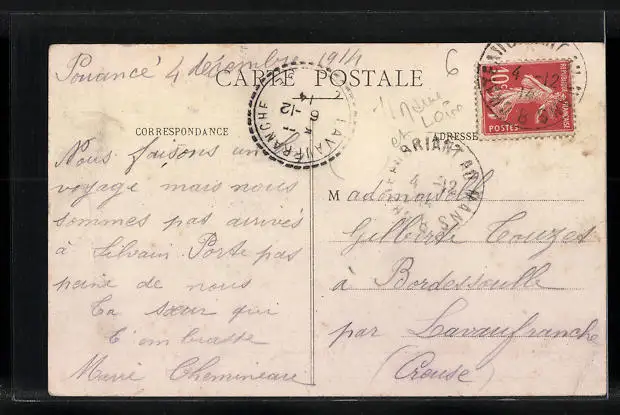 Pouancé 4 décembre 1914
6
CARTE POSTALE
CORRESPONDANCE
ADRESSE
Maine
et
Loire
Nous faisons un
voyage mais nous
sommes pas arrivés
à Silvain. Porte pas
peine de nous
Ta sœur qui
t'embrasse
Marie Chemineau
Mademoiselle
Gilberte Touzet
à Bordessoulle
par Lavaufranche
(Creuse)
LAVAUFRANCHE
6 -12
14
4 -12
4 -12
10
POSTES
REPUBLIQUE FRANÇAISE